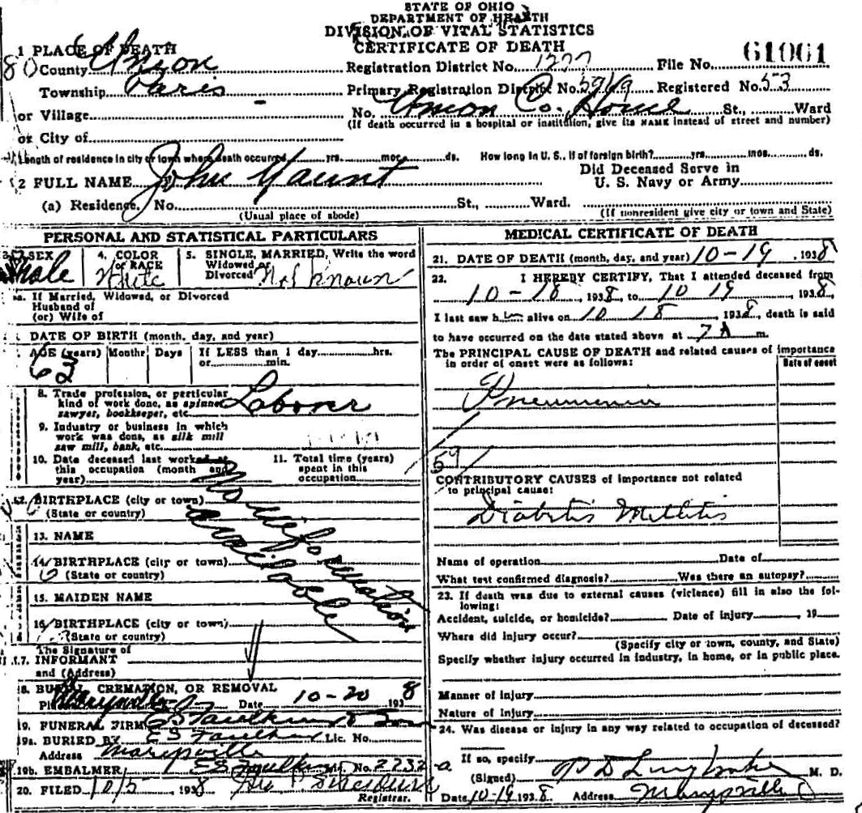 STATE OF OHIO
DEPARTMENT OF HEALTH
DIVISION OF VITAL STATISTICS
CERTIFICATE OF DEATH
1 PLACE OF DEATH
County Union
Township Paris
or Village
or City of
Registration District No. 1277 File No. 61061
Primary Registration District No. Registered No. 53
No. Union Co. Home St., Ward
(If death occurred in a hospital or institution, give its NAME instead of street and number)
Length of residence in city or town where death occurred yrs. mos. ds. How long in U. S., if of foreign birth? yrs. mos. ds.
2 FULL NAME John Yaunt
Did Deceased Serve in
U. S. Navy or Army
(a) Residence, No. St., Ward.
(Usual place of abode) (If nonresident give city or town and State)
PERSONAL AND STATISTICAL PARTICULARS
3. SEX Male
4. COLOR or RACE White
5. SINGLE, MARRIED, Write the word
Widowed or
Divorced Not known
5a. If Married, Widowed, or Divorced
Husband of
(or) Wife of
DATE OF BIRTH (month, day, and year)
AGE (years) Months Days If LESS than 1 day hrs.
or min.
63
8. Trade profession, or particular
kind of work done, as spinner
sawyer, bookkeeper, etc. Laborer
9. Industry or business in which
work was done, as silk mill
saw mill, bank, etc.
10. Date deceased last worked at
this occupation (month and
year)
11. Total time (years)
spent in this
occupation
12. BIRTHPLACE (city or town)
(State or country)
No information
available
13. NAME
14. BIRTHPLACE (city or town)
(State or country)
15. MAIDEN NAME
16. BIRTHPLACE (city or town)
(State or country)
The Signature of
17. INFORMANT
and (Address)
18. BURIAL, CREMATION, OR REMOVAL
Place Marysville O Date 10-20 1938
19. FUNERAL FIRM E S Faulkner & Son
19a. BURIED BY E S Faulkner Lic. No.
Address Marysville
19b. EMBALMER E S Faulkner Lic. No. 2232-a
20. FILED 10/5 1938
Registrar.
MEDICAL CERTIFICATE OF DEATH
21. DATE OF DEATH (month, day, and year) 10-19, 1938
22. I HEREBY CERTIFY, That I attended deceased from
10-18, 1938, to 10 19, 1938,
I last saw him alive on 10 18, 1938, death is said
to have occurred on the date stated above at 7 A m.
The PRINCIPAL CAUSE OF DEATH and related causes of importance
in order of onset were as follows: Date of onset
Pneumonia
59
CONTRIBUTORY CAUSES of importance not related
to principal cause:
Diabetis Mellitis
Name of operation Date of
What test confirmed diagnosis? Was there an autopsy?
23. If death was due to external causes (violence) fill in also the following:
Accident, suicide, or homicide? Date of injury 19
Where did injury occur?
(Specify city or town, county, and State)
Specify whether injury occurred in industry, in home, or in public place.
Manner of injury
Nature of injury
24. Was disease or injury in any way related to occupation of deceased?
If so, specify
(Signed) M. D.
Date 10-19 1938. Address Marysville O